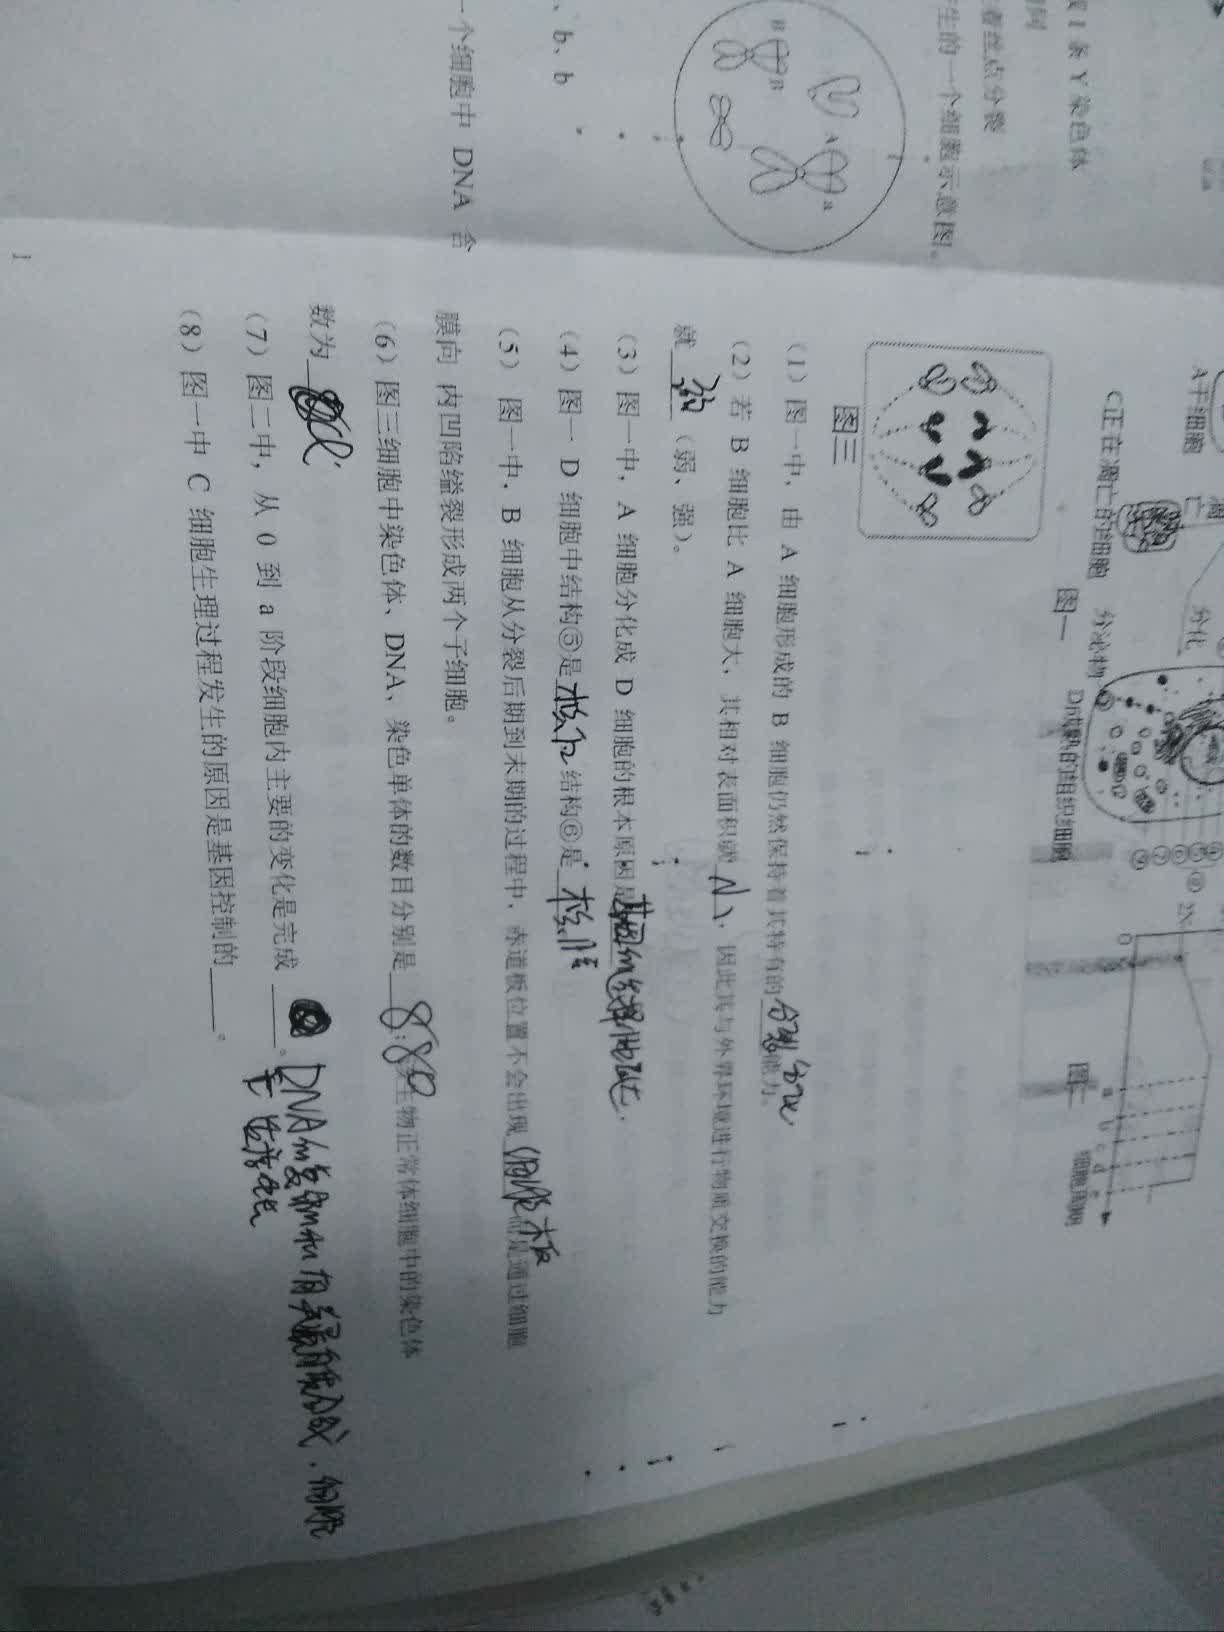 成 1 条 Y 染色体
着丝点分裂
产生的一个细胞示意图。
B
B
A
a
、b、b
一个细胞中 DNA 含
A干细胞
凋亡
C正在凋亡的细胞
分化
分泌物
D成熟的组织细胞
图一
2N
O
a
b
c
d
e
细胞周期
图二
图三
(1) 图一中, 由 A 细胞形成的 B 细胞仍然保持着其特有的 分裂分化 能力。
(2) 若 B 细胞比 A 细胞大, 其相对表面积就 小, 因此其与外界环境进行物质交换的能力
就 弱 (弱、强)。
(3) 图一中, A 细胞分化成 D 细胞的根本原因是 基因的选择性表达.
(4) 图一 D 细胞中结构⑤是 核仁 结构⑥是 核膜
(5) 图一中, B 细胞从分裂后期到末期的过程中, 赤道板位置不会出现 细胞板 而是通过细胞
膜向 内凹陷缢裂形成两个子细胞。
(6) 图三细胞中染色体、DNA、染色单体的数目分别是 8:8:0 生物正常体细胞中的染色体
数为
(7) 图二中, 从 0 到 a 阶段细胞内主要的变化是完成 。 DNA的复制和有关蛋白质合成. 细胞
生长
(8) 图一中 C 细胞生理过程发生的原因是基因控制的 。
1